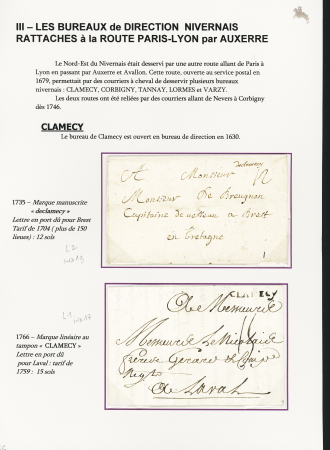 III – LES BUREAUX de DIRECTION NIVERNAIS
RATTACHES à la ROUTE PARIS-LYON par AUXERRE
Le Nord-Est du Nivernais était desservi par une autre route allant de Paris à
Lyon en passant par Auxerre et Avallon. Cette route, ouverte au service postal en
1679, permettait par des courriers à cheval de desservir plusieurs bureaux
nivernais : CLAMECY, CORBIGNY, TANNAY, LORMES et VARZY.
Les deux routes ont été reliées par des courriers allant de Nevers à Corbigny
dès 1746.
CLAMECY
Le bureau de Clamecy est ouvert en bureau de direction en 1630.
declamecy
A Monsieur
Monsieur De Breugnon
Capitaine de vesseau a Brest
en bretagne
1735 – Marque manuscrite
« declamecy »
Lettre en port dû pour Brest
Tarif de 1704 ( plus de 150
lieues) : 12 sols
L2
L1
CLAMECY
1766 – Marque linéaire au
tampon « CLAMECY »
Lettre en port dû
pour Laval : tarif de
1759 : 15 sols
A Laval